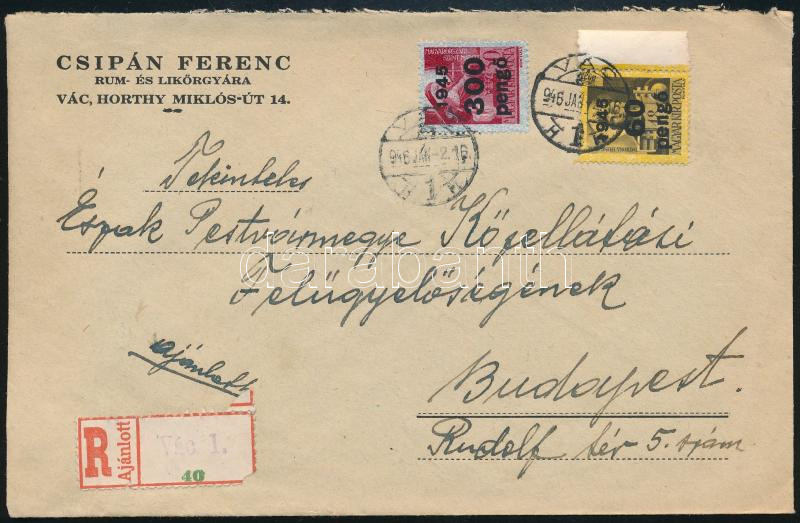 CSIPÁN FERENC
RUM- ÉS LIKŐRGYÁRA
VÁC, HORTHY MIKLÓS-ÚT 14.
1945
300
pengő
1945
60
pengő
MAGYAR KIR. POSTA
VÁC
946 JAN -2. 16
1
VÁC
946 JAN
1
Tekintetes
Észak Pestvármegye Közellátási
Felügyelőségének
ajánlott
Budapest.
Rudolf tér 5. szám
R
Ajánlott
Vác 1.
40
darabanth